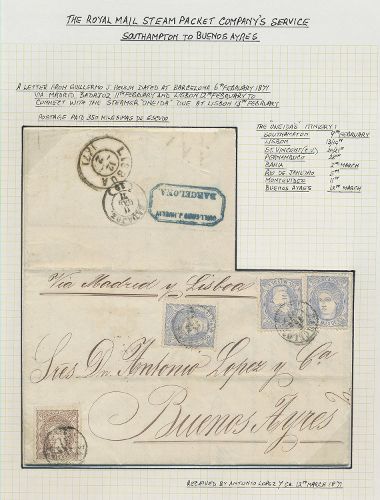 THE ROYAL MAIL STEAM PACKET COMPANY'S SERVICE
SOUTHAMPTON TO BUENOS AYRES
A LETTER FROM GUILLERMO J. HUELIN DATED AT BARCELONA 8TH FEBRUARY 1871
VIA MADRID, BADAJOZ 11TH FEBRUARY AND LISBON 12TH FEBRUARY TO
CONNECT WITH THE STEAMER "ONEIDA" DUE AT LISBON 13TH FEBRUARY
POSTAGE PAID 350 MILESIMAS DE ESCUDO
THE ONEIDA'S ITINERY:
SOUTHAMPTON 9TH FEBRUARY
LISBON 13/14TH
ST. VINCENT (C.V.) 20/21ST
PERNAMBUCO 28TH
BAHIA 2ND MARCH
RIO DE JANEIRO 5TH
MONTEVIDEO 11TH
BUENOS AYRES 12TH MARCH
LISBOA
GUILLERMO J. HUELIN
BARCELONA
Via Madrid y Lisboa
Sres Dn Antonio Lopez y Ca
Buenos Ayres
RECEIVED BY ANTONIO LOPEZ Y CA. 12TH MARCH 1871